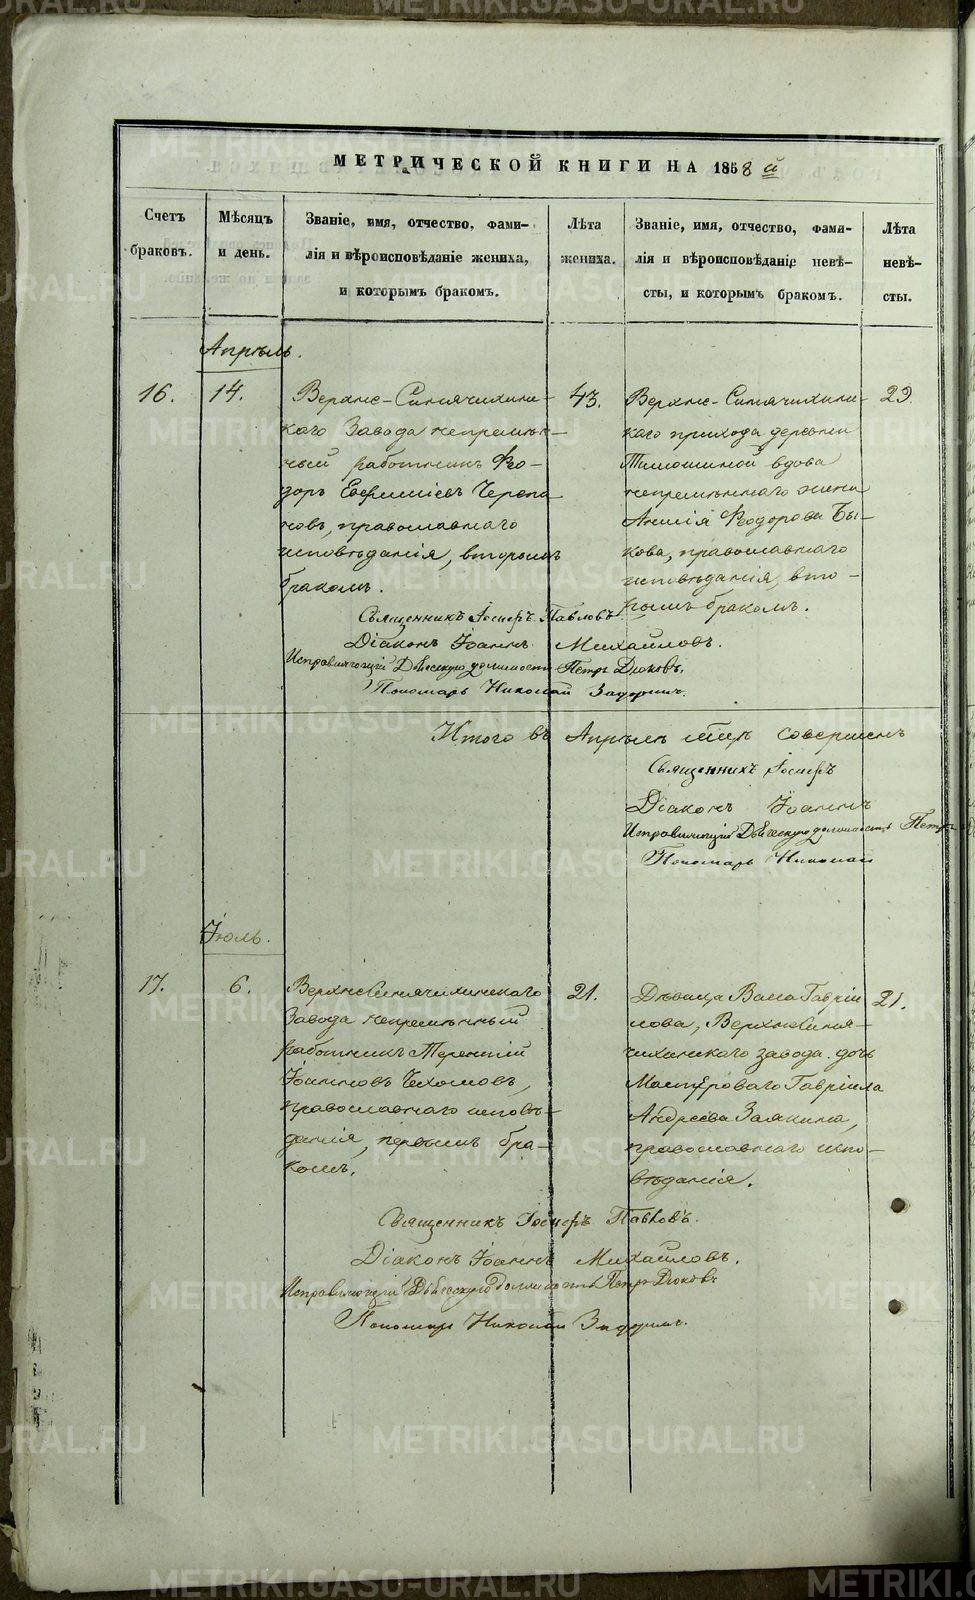 МЕТРИЧЕСКОЙ КНИГИ НА 1858 й
Счетъ браковъ.
Мѣсяцъ и день.
Званіе, имя, отчество, фами-
лія и вѣроисповѣданіе жениха,
и которымъ бракомъ.
Лѣта жениха.
Званіе, имя, отчество, фами-
лія и вѣроисповѣданіе невѣ-
сты, и которымъ бракомъ.
Лѣта невѣ-
сты.
Апрѣль.
16.
14.
Верхне-Синячихин-
скаго Завода непремѣн-
ный работникъ Фео-
доръ Евфиміевъ Черепа
новъ, православнаго
исповѣданія, вторымъ
бракомъ.
43.
Верхне-Синячихин-
скаго прихода деревни
Тимошиной вдова
непремѣннаго жена
Анисія Ѳеодорова Бы-
кова, православнаго
исповѣданія, вто-
рымъ бракомъ.
29.
Священникъ Іосифъ Павловъ
Діаконъ Іоаннъ Михайловъ.
Исправляющій Дьяческую должность Петръ Дюковъ.
Пономарь Николай Задоринъ.
Итого въ Апрѣлѣ мѣсяцѣ совершенъ
Священникъ Іосифъ
Діаконъ Іоаннъ
Исправляющій Дьяческую должность Петръ
Пономарь Николай
Іюль.
17.
6.
ВерхнеСинячихинскаго
Завода непремѣнный
работникъ Терентій
Іоанновъ Чехомовъ,
православнаго исповѣ-
данія, первымъ бра-
комъ.
21.
Дѣвица Васса Гавріи
лова, ВерхнеСиня-
чихинскаго завода дочь
Мастероваго Гавріила
Андреева Заякина,
православнаго испо-
вѣданія.
21.
Священникъ Іосифъ Павловъ.
Діаконъ Іоаннъ Михайловъ.
Исправляющій Дьяческую должность Петръ Дюковъ
Пономарь Николай Задоринъ.
METRIKI.GASO-URAL.RU